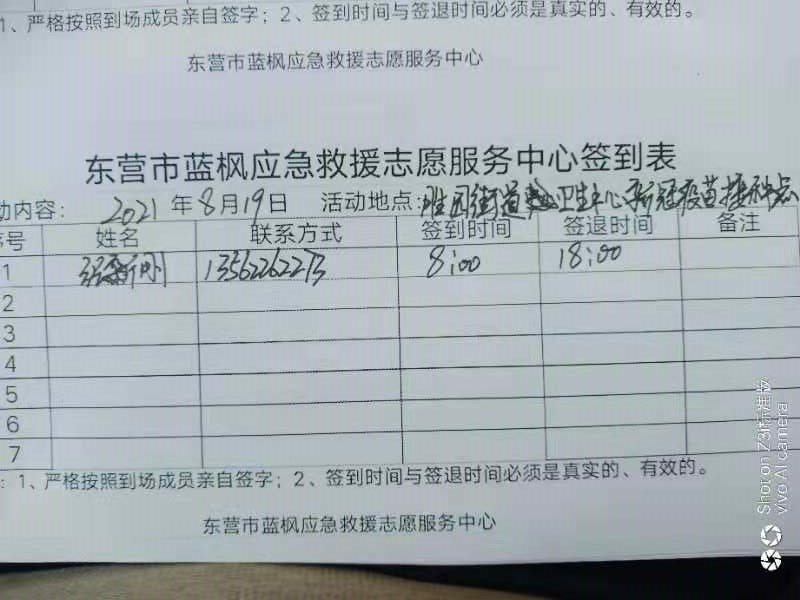 1、严格按照到场成员亲自签字；2、签到时间与签退时间必须是真实的、有效的。
东营市蓝枫应急救援志愿服务中心
东营市蓝枫应急救援志愿服务中心签到表
动内容： 2021 年 8 月 19 日 活动地点：胜园街道 卫生中心新冠疫苗接种点
序号 姓名 联系方式 签到时间 签退时间 备注
1 刚 13562262273 8:00 18:00
2
3
4
5
6
7
：1、严格按照到场成员亲自签字；2、签到时间与签退时间必须是真实的、有效的。
东营市蓝枫应急救援志愿服务中心
Shot on Z3i标准版
vivo AI camera